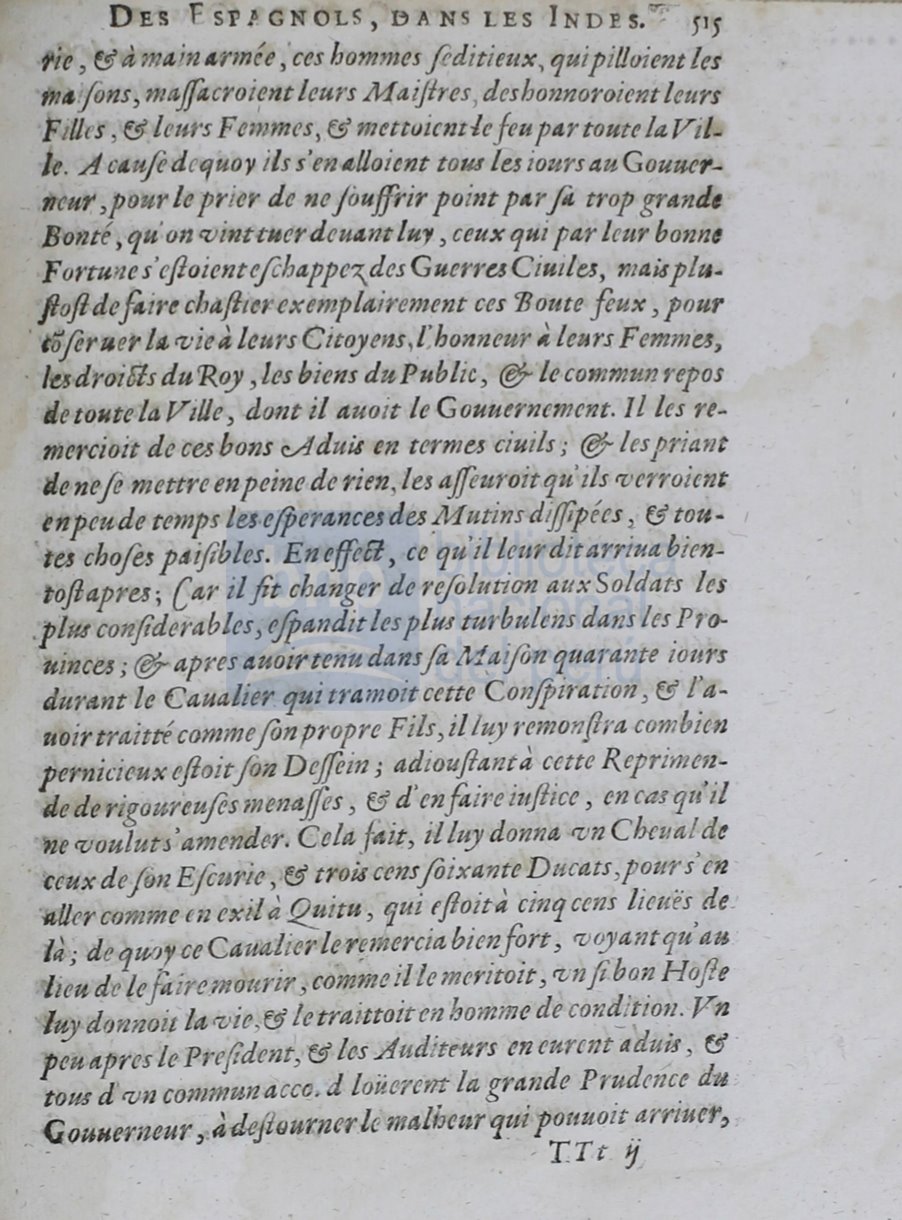 DES ESPAGNOLS, DANS LES INDES. 515
rie, & à main armée, ces hommes ſeditieux, qui pilloient les
maiſons, maſſacroient leurs Maiſtres, deshonnoroient leurs
Filles, & leurs Femmes, & mettoient le feu par toute la Vil-
le. A cauſe dequoy ils s'en alloient tous les iours au Gouuer-
neur, pour le prier de ne ſouffrir point par ſa trop grande
Bonté, qu'on vint tuer deuant luy, ceux qui par leur bonne
Fortune s'eſtoient eſchappez des Guerres Ciuiles, mais plu-
ſtoſt de faire chaſtier exemplairement ces Boute feux, pour
cõſeruer la vie à leurs Citoyens, l'honneur à leurs Femmes,
les droicts du Roy, les biens du Public, & le commun repos
de toute la Ville, dont il auoit le Gouuernement. Il les re-
mercioit de ces bons Aduis en termes ciuils; & les priant
de ne ſe mettre en peine de rien, les aſſeuroit qu'ils verroient
en peu de temps les eſperances des Mutins diſſipées, & tou-
tes choſes paiſibles. En effect, ce qu'il leur dit arriua bien-
toſt apres; Car il fit changer de reſolution aux Soldats les
plus conſiderables, eſpandit les plus turbulens dans les Pro-
uinces; & apres auoir tenu dans ſa Maiſon quarante iours
durant le Caualier qui tramoit cette Conſpiration, & l'a-
uoir traitté comme ſon propre Fils, il luy remonſtra combien
pernicieux eſtoit ſon Deſſein; adiouſtant à cette Reprimen-
de de rigoureuſes menaſſes, & d'en faire iuſtice, en cas qu'il
ne voulut s'amender. Cela fait, il luy donna vn Cheual de
ceux de ſon Eſcurie, & trois cens ſoixante Ducats, pour s'en
aller comme en exil à Quitu, qui eſtoit à cinq cens lieuës de
là; de quoy ce Caualier le remercia bien fort, voyant qu'au
lieu de le faire mourir, comme il le meritoit, vn ſi bon Hoſte
luy donnoit la vie, & le traittoit en homme de condition. Vn
peu apres le Preſident, & les Auditeurs en eurent aduis, &
tous d'vn commun acco.d loüerent la grande Prudence du
Gouuerneur, à deſtourner le malheur qui pouuoit arriuer,
TTt ij
biblioteca
nacional
del perú